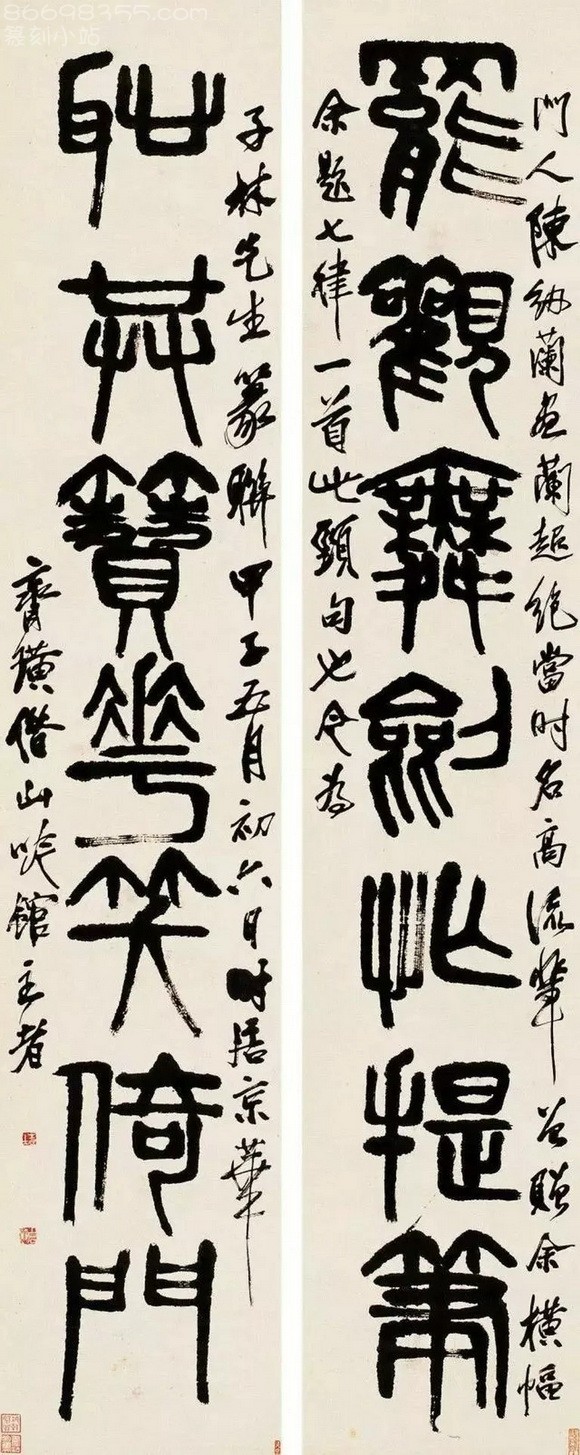 86698355.com
篆刻小站
門人陳紉蘭畫蘭超絕當時名高流輩曾贈余橫幅
罷觀舞劍忙提筆
余題七律一首此頸句也今為
子林先生篆聯甲子五月初六日時居京華
耻共簪花笑倚門
齊璜借山吟館主者